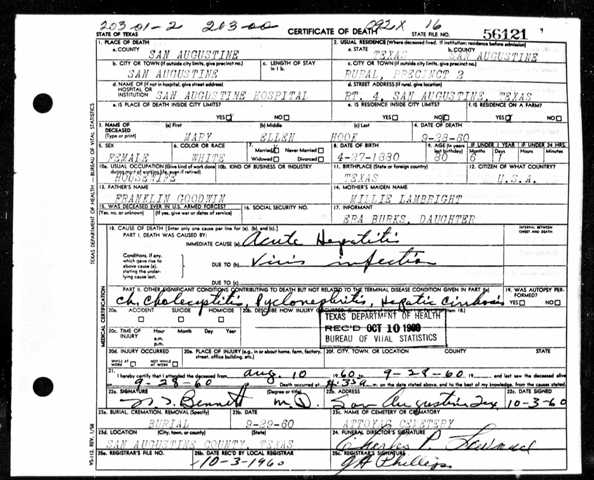 203 01-2 203-00 092X 16
STATE OF TEXAS CERTIFICATE OF DEATH STATE FILE NO. 56121
1. PLACE OF DEATH 2. USUAL RESIDENCE (Where deceased lived. If institution: residence before admission)
a. COUNTY SAN AUGUSTINE a. STATE TEXAS b. COUNTY SAN AUGUSTINE
b. CITY OR TOWN (If outside city limits, give precinct no.) c. LENGTH OF STAY in 1 b. c. CITY OR TOWN (If outside city limits, give precinct no.)
SAN AUGUSTINE RURAL, PRECINCT 3
d. NAME OF (If not in hospital, give street address) HOSPITAL OR INSTITUTION SAN AUGUSTINE HOSPITAL d. STREET ADDRESS (If rural, give location) RT. 4, SAN AUGUSTINE, TEXAS
e. IS PLACE OF DEATH INSIDE CITY LIMITS? YES NO e. IS RESIDENCE INSIDE CITY LIMITS? YES NO f. IS RESIDENCE ON A FARM? YES NO
3. NAME OF DECEASED (Type or print) (a) First (b) Middle (c) Last 4. DATE OF DEATH
MARY ELLEN HOOK 9-28-60
5. SEX 6. COLOR OR RACE 7. Married Never Married Widowed Divorced 8. DATE OF BIRTH 9. AGE (In years last birthday) IF UNDER 1 YEAR IF UNDER 24 HRS.
FEMALE WHITE 4-27-1880 80 Months Days Hours
10a. USUAL OCCUPATION (Give kind of work done during most of working life, even if retired) 10b. KIND OF BUSINESS OR INDUSTRY 11. BIRTHPLACE (State or foreign country) 12. CITIZEN OF WHAT COUNTRY?
HOUSEWIFE TEXAS U.S.A.
13. FATHER'S NAME 14. MOTHER'S MAIDEN NAME
FRANKLIN GOODWIN MILLIE LAMBRIGHT
15. WAS DECEASED EVER IN U.S. ARMED FORCES? (Yes, no, or unknown) (If yes, give war or dates of service) 16. SOCIAL SECURITY NO. 17. INFORMANT
ERA BURKS, DAUGHTER
18. CAUSE OF DEATH [Enter only one cause per line for (a), (b), and (c).] INTERVAL BETWEEN ONSET AND DEATH
PART I. DEATH WAS CAUSED BY: IMMEDIATE CAUSE (a) Acute Hepatitis
Conditions, if any, which gave rise to above cause (a), stating the underlying cause last. DUE TO (b) Virus infection
DUE TO (c)
PART II. OTHER SIGNIFICANT CONDITIONS CONTRIBUTING TO DEATH BUT NOT RELATED TO THE TERMINAL DISEASE CONDITION GIVEN IN PART I(a) 19. WAS AUTOPSY PERFORMED? YES NO
Ch. Cholecystitis, Pyelonephritis, Hepatic Cirrhosis
20a. ACCIDENT SUICIDE HOMICIDE 20b. DESCRIBE HOW INJURY OCCURRED
20c. TIME OF INJURY Hour Month Day Year
TEXAS DEPARTMENT OF HEALTH
REC'D OCT 10 1960
BUREAU OF VITAL STATISTICS
20d. INJURY OCCURRED WHILE AT WORK NOT WHILE AT WORK 20e. PLACE OF INJURY (e.g., in or about home, farm, factory, street, office building, etc.) 20f. CITY, TOWN, OR LOCATION COUNTY STATE
21. I hereby certify that I attended the deceased from Aug. 10 1960 to 9-28-60 19 and last saw the deceased alive
9-28-60 Death occurred at m. on the date stated above, and to the best of my knowledge, from the causes stated.
22a. SIGNATURE (Degree or title) 22b. ADDRESS
Bennett M.D. San Augustine Tex 10-3-60
23a. BURIAL, CREMATION, REMOVAL (Specify) 23b. DATE 23c. NAME OF CEMETERY OR CREMATORY
BURIAL 9-29-60 ATTOYAC CEMETERY
23d. LOCATION (City, town, or county) (State) 24. FUNERAL DIRECTOR'S SIGNATURE
SAN AUGUSTINE COUNTY, TEXAS Charles P.
25a. REGISTRAR'S FILE NO. 25b. DATE REC'D BY LOCAL REGISTRAR 25c. REGISTRAR'S SIGNATURE
10-3-1960 Phillips
TEXAS DEPARTMENT OF HEALTH - BUREAU OF VITAL STATISTICS
MEDICAL CERTIFICATION
VS-112, REV. 1/58